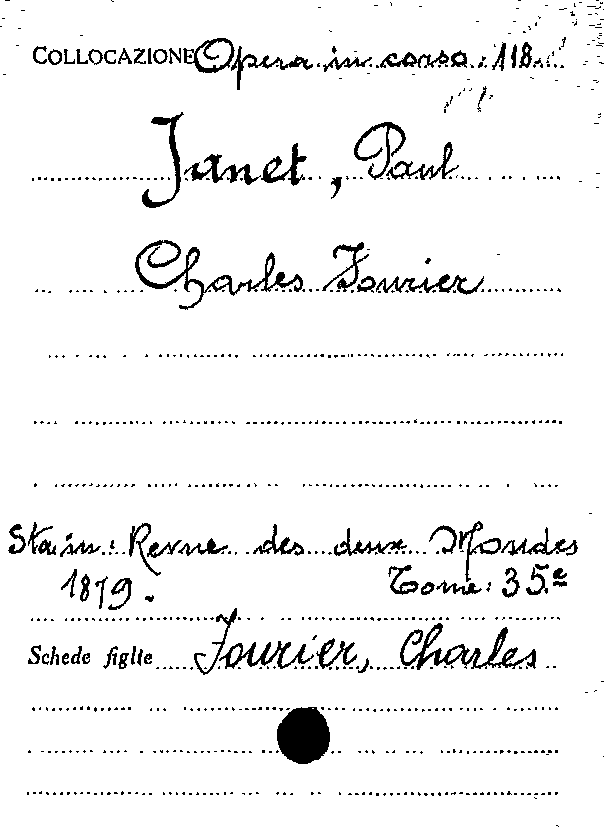 COLLOCAZIONE Opera in corso: 118.
Janet, Paul
Charles Fourier
Sta in: Revue des deux Mondes
1879. Tome: 35.e
Schede figlie Fourier, Charles